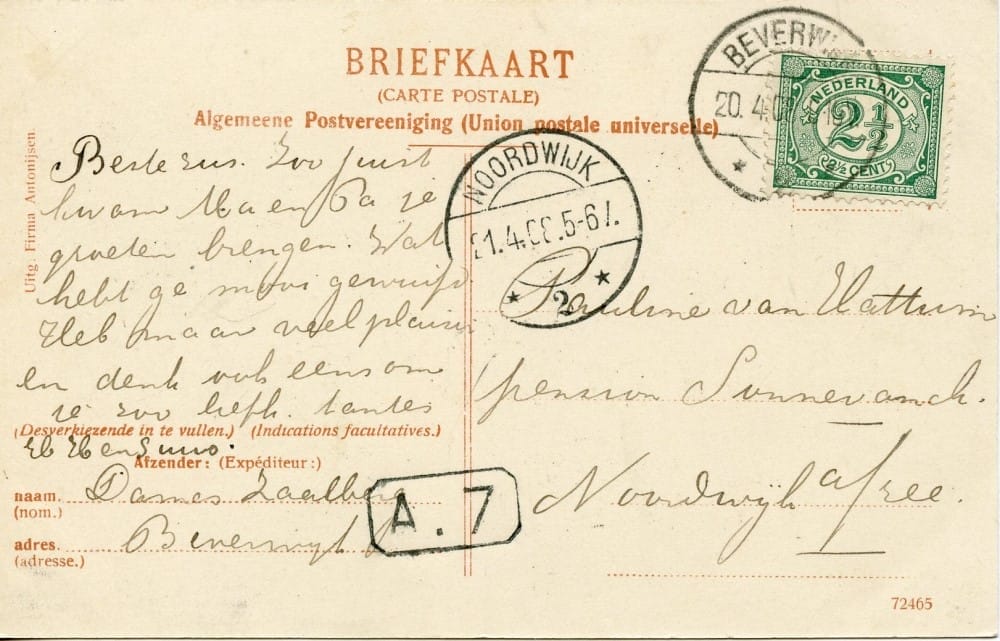 BRIEFKAART
(CARTE POSTALE)
Algemeene Postvereeniging (Union postale universelle)
BEVERW
20. 4.0
NEDERLAND
2½
2½ CENT
NOORDWIJK
21.4.08.5-6
2
Uitg. Firma Antonijsen.
Beste zus. Zoo juist
kwam Ma en Pa je
groeten brengen. Wat
hebt ge mooi gewuifd
Heb maar veel plaisir
en denk ook eens om
je zoo liefh. tantes
(Desverkiezende in te vullen.) (Indications facultatives.)
Afzender: (Expéditeur:)
naam. Dames Zaalberg
(nom.)
adres. Beverwijk
(adresse.)
A. 7
Pauline van Hattum
pension Sonnevanck.
Noordwijk a/Zee.
72465